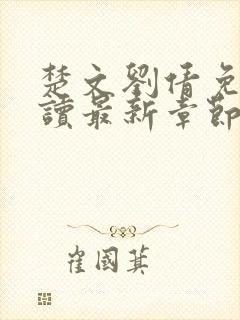 楚文劉倩免
讀最新章節
崔國萁